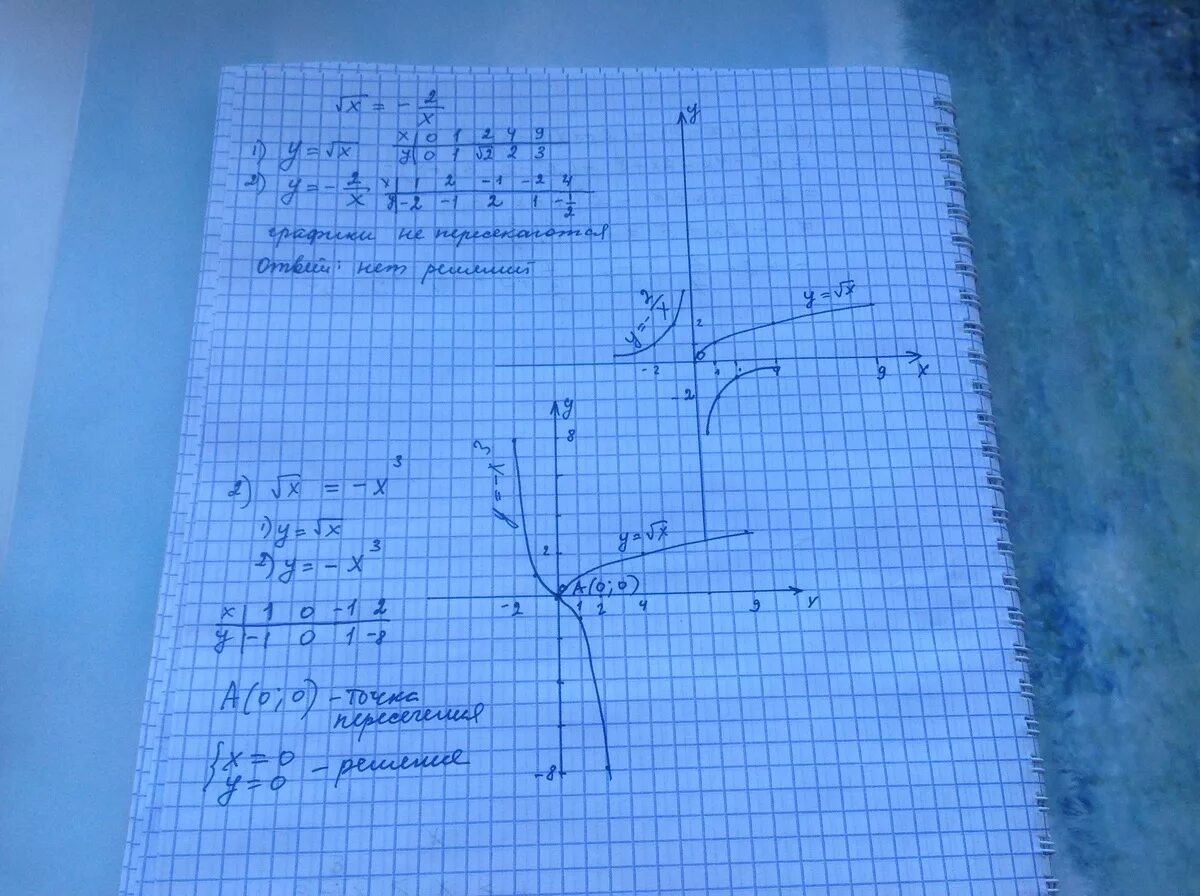 √x = - 2/x
1) y = √x
x | 0 1 2 4 9
y | 0 1 √2 2 3
2) y = - 2/x
x | 1 2 -1 -2 4
y | -2 -1 2 1 -1/2
графики не пересекаются
Ответ: нет решений
y
y = -2/x
y = √x
2
0
-2
9
x
-2
2) √x = -x³
1) y = √x
2) y = -x³
x | 1 0 -1 2
y | -1 0 1 -8
A(0; 0) - точка
пересечения
{ x = 0
y = 0 - решение
y
8
y = -x³
y = √x
2
A(0; 0)
-2
1 2 4 9
x
-8